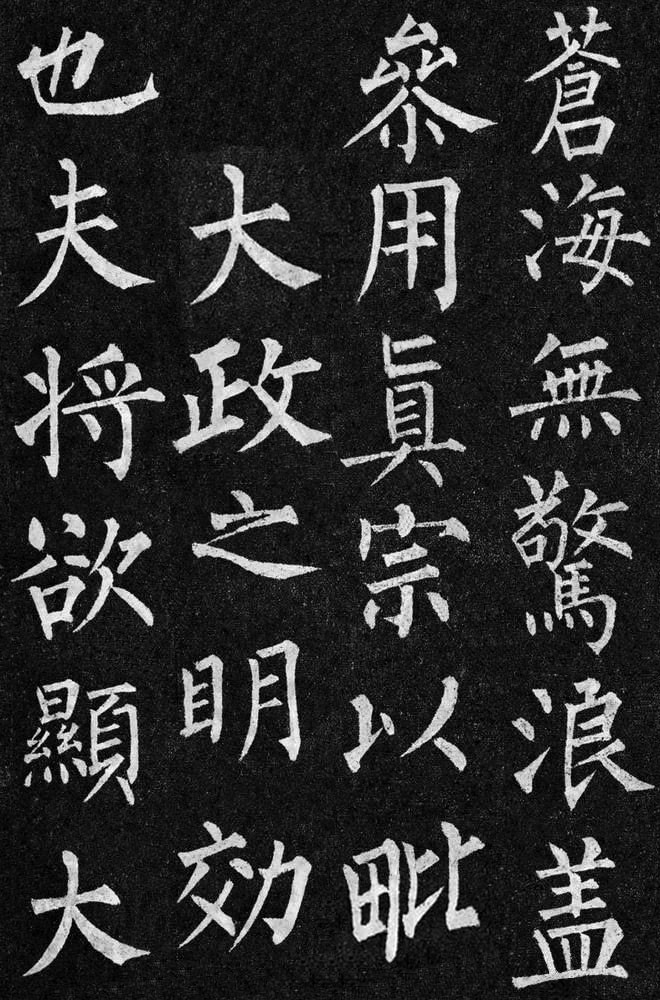 蒼海無驚浪盖
叅用眞宗以毗
大政之明効
也夫将欲顯大